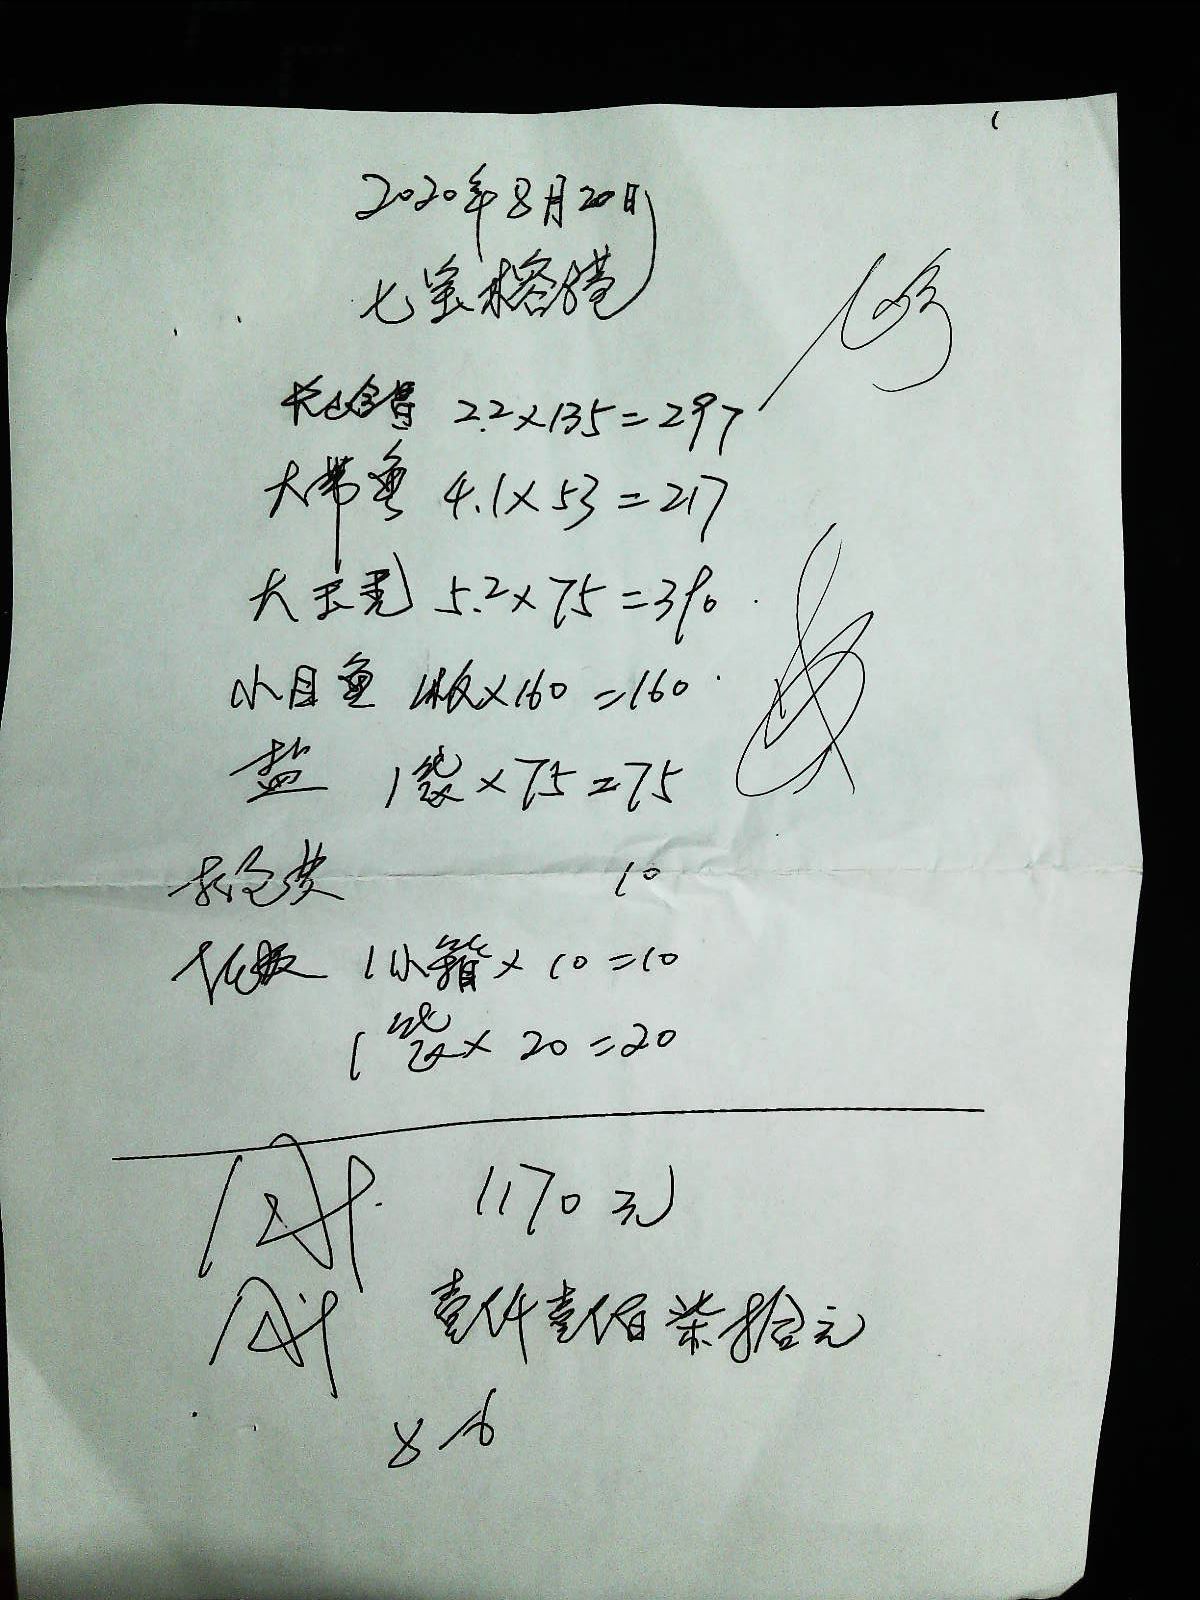 2020年8月20日
七宝榕港
2.2×135=297
大带鱼 4.1×53=217
大玉秃 5.2×75=390
小目鱼 1板×160=160
盐 1袋×75=75
打包费 10
1小箱×10=10
1袋×20=20
1170元
壹仟壹佰柒拾元